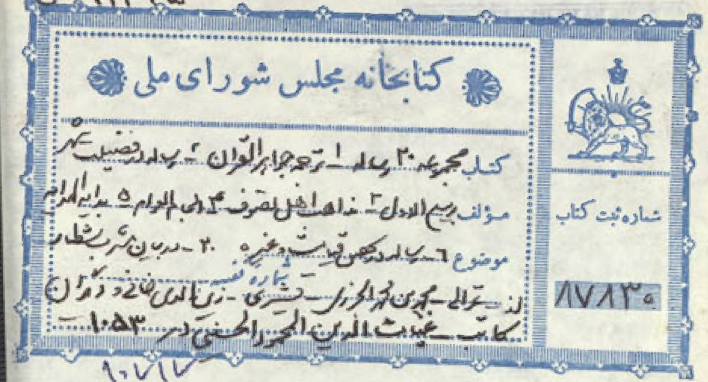 کتابخانه مجلس شورای ملی
کتاب مجموعه ۲۰ رساله ۱ ترجمه جواهر القرآن ۲ رساله در فضیلت شهر
مؤلف ربیع الاول ۳ مذاهب اهل تصوف ۴ الوام ۵ بدایة الهدایه
موضوع ۶ رساله در قیامت و غیره ۲۰ در بیان
شماره قفسه
از غزالی محمد بن محمد الجزری قشیری زین الدین خافی و دیگران
کاتب غیاث الدین المحمود الحسنی در ۱۰۵۳
شماره ثبت کتاب
۸۷۸۳۰